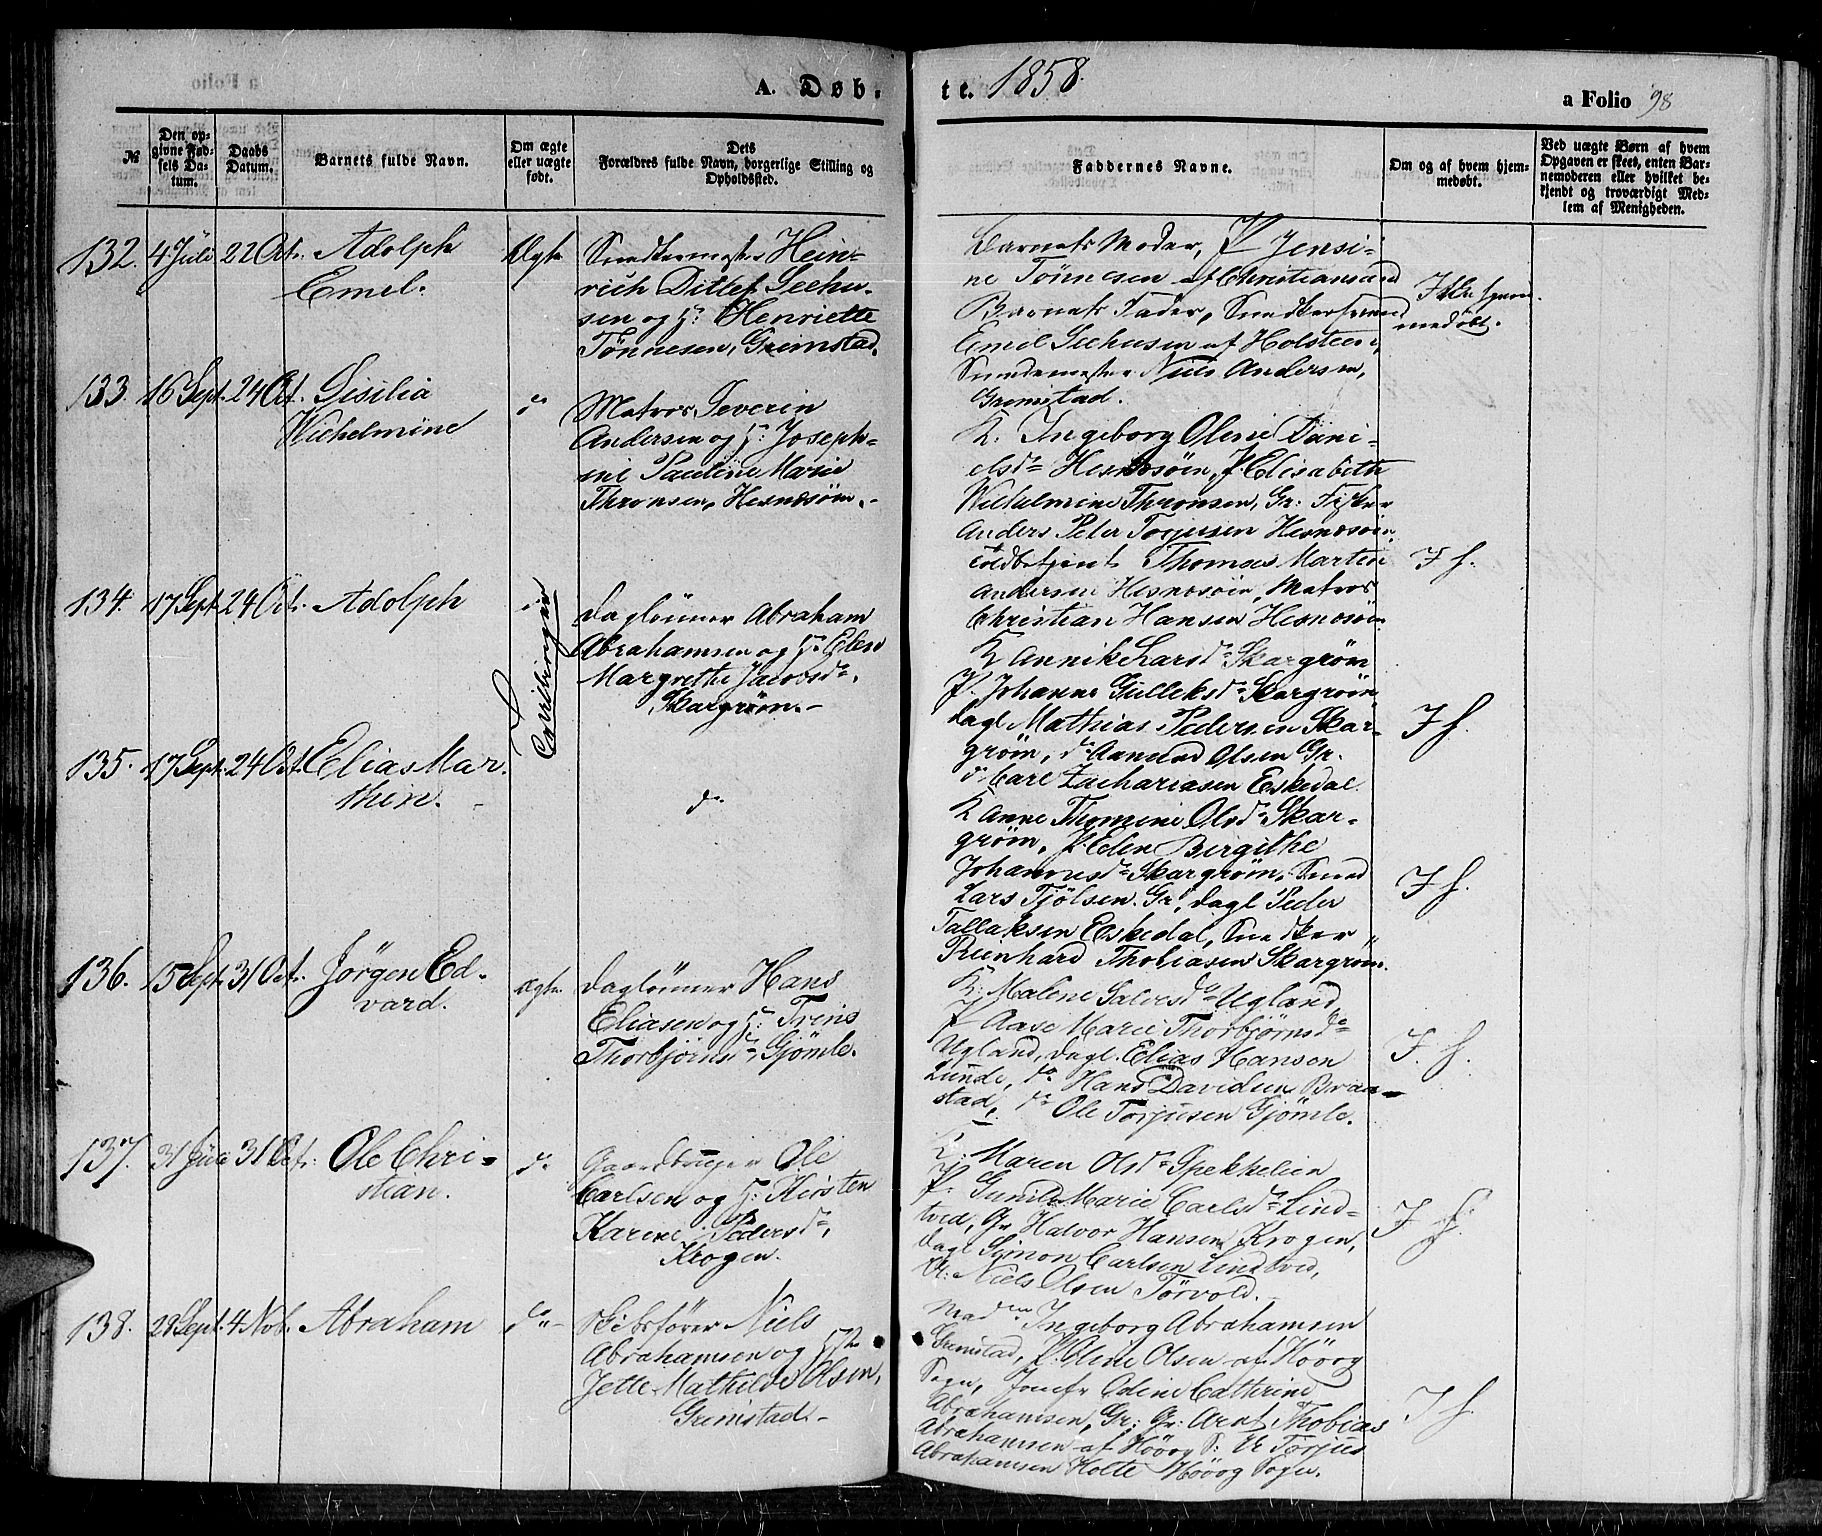 A. Døb-
te. 1858.
a Folio 98
№
Den op-
givne Fød-
sels Da-
tum.
Daabs
Datum.
Barnets fulde Navn.
Om ægte
eller uægte
født.
Dets
Forældres fulde Navn, borgerlige Stilling og
Opholdssted.
Faddernes Navne.
Om og af hvem hjem-
medøbt.
Ved uægte Børn af hvem
Opgaven er skeet, enten Bar-
nemoderen eller hvilket be-
kjendt og troværdigt Med-
lem af Menigheden.
132. 4 Juli 22 Oct. Adolph
Emel.
Ægte
Snedkermester Hein-
rich Ditlef Seehu-
sen og H: Henriette
Tönnesen, Grimstad.
Barnets Moder, P Jensi-
ne Tönnesen af Christiansand
Barnets Fader, Snedkersvend
Emil Seehusen af Holsteen,
Niels Andersen,
Grimstad.
Ikke hjem-
medöbt.
133. 16 Sept. 24 Oct. Sisilia
Wilhelmine
do
Matros Severin
Andersen og H: Joseph-
ine Pauline Marie
Thronsen, Hesnesöen.-
K. Ingeborg Olene Dani-
elsdr Hesnesöen, P. Elisabeth
Wilhelmine Thronsen, Gr: Fisker
Anders Peter Torjusen Hesnesöen,
Toldbetjent Thomas Martin
Andersen Hesnesöen, Matros
Christian Hansen Hesnesöen
I h.
134. 17 Sept. 24 Oct. Adolph
do
Tvillinger
Daglönner Abraham
Abrahamsen og H: Elen
Margrethe Jacobsdr,
Skargröm.-
K Annik Larsdr Skargröm
P. Johanne Gulleksdr Skargröm,
Dagl Mathias Pedersen Skar-
gröm, do Aanund Olsen Gr.
do Carl Zachariasen Eskedal.
I h.
135. 17 Sept. 24 Oct. Elias Mar-
thin.
do
K Anne Thomine Olsdr Skar-
gröm, P. Elen Birgithe
Johannesdr Skargröm, Smed
Lars Tjölsen. Gr, Dagl Peder
Tallaksen Eskedal, Snedker
Reinhard Thobiasen Skargröm.
I h.
136. 15 Sept. 31 Oct. Jörgen Ed-
vard.
Ægte
Daglönner Hans
Eliasen og H: Trine
Thorbjörnsdr, Gjömle.
K: Malene Salvesdr Ugland,
P Aase Marie Thorbjörnsdr
Ugland, Dagl. Elias Hansen
Lunde, do Hans Davidsen Braa-
stad, do Ole Torjusen Gjömle.
I. h.
137. 31 Juli 31 Oct. Ole Chri-
stian.
do
Gaardbruger Ole
Carlsen og H: Kirsten
Karine Pedersdr,
Krogen.
K: Maren Olsdr Spekkelien
P. Gunild Marie Carlsdr Lind-
tved, Gr Halvor Hansen Krogen,
Dagl Simon Carlsen Lindtved,
U: Niels Olsen Törvold.
I h.
138. 28 Sept. 4 Nob. Abraham
do
Skibsförer Niels
Abrahamsen og Hst
Jette Mathilde Olsen,
Grimstad.-
Madm Ingeborg Abrahamsen
Grimstad, P. Oline Olsen af Höivog
Sogn, Jomfr Edine Cathrine
Abrahamsen, Gr: Gr: Arnt Thobias
Abrahamsen af Höivog S: U Torjus
Abrahamsen Holte Höivog Sogn.
I h.